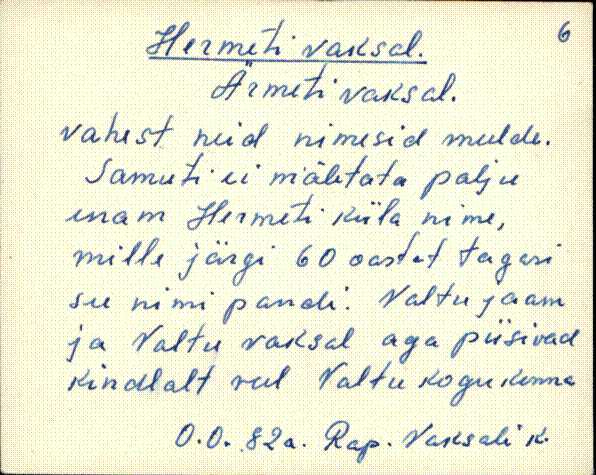 6
Hermeti vaksal.
Ärmeti vaksal.
vahest neid nimesid mulde.
Samuti ei mäletata palju
enam Hermeti küla nime,
mille järgi 60 aastat tagasi
su nimi pandi. Valtu jaam
ja Valtu vaksal aga püsivad
kindlalt veel Valtu kogukonna
O.O. 82a. Rap. Vaksali k.